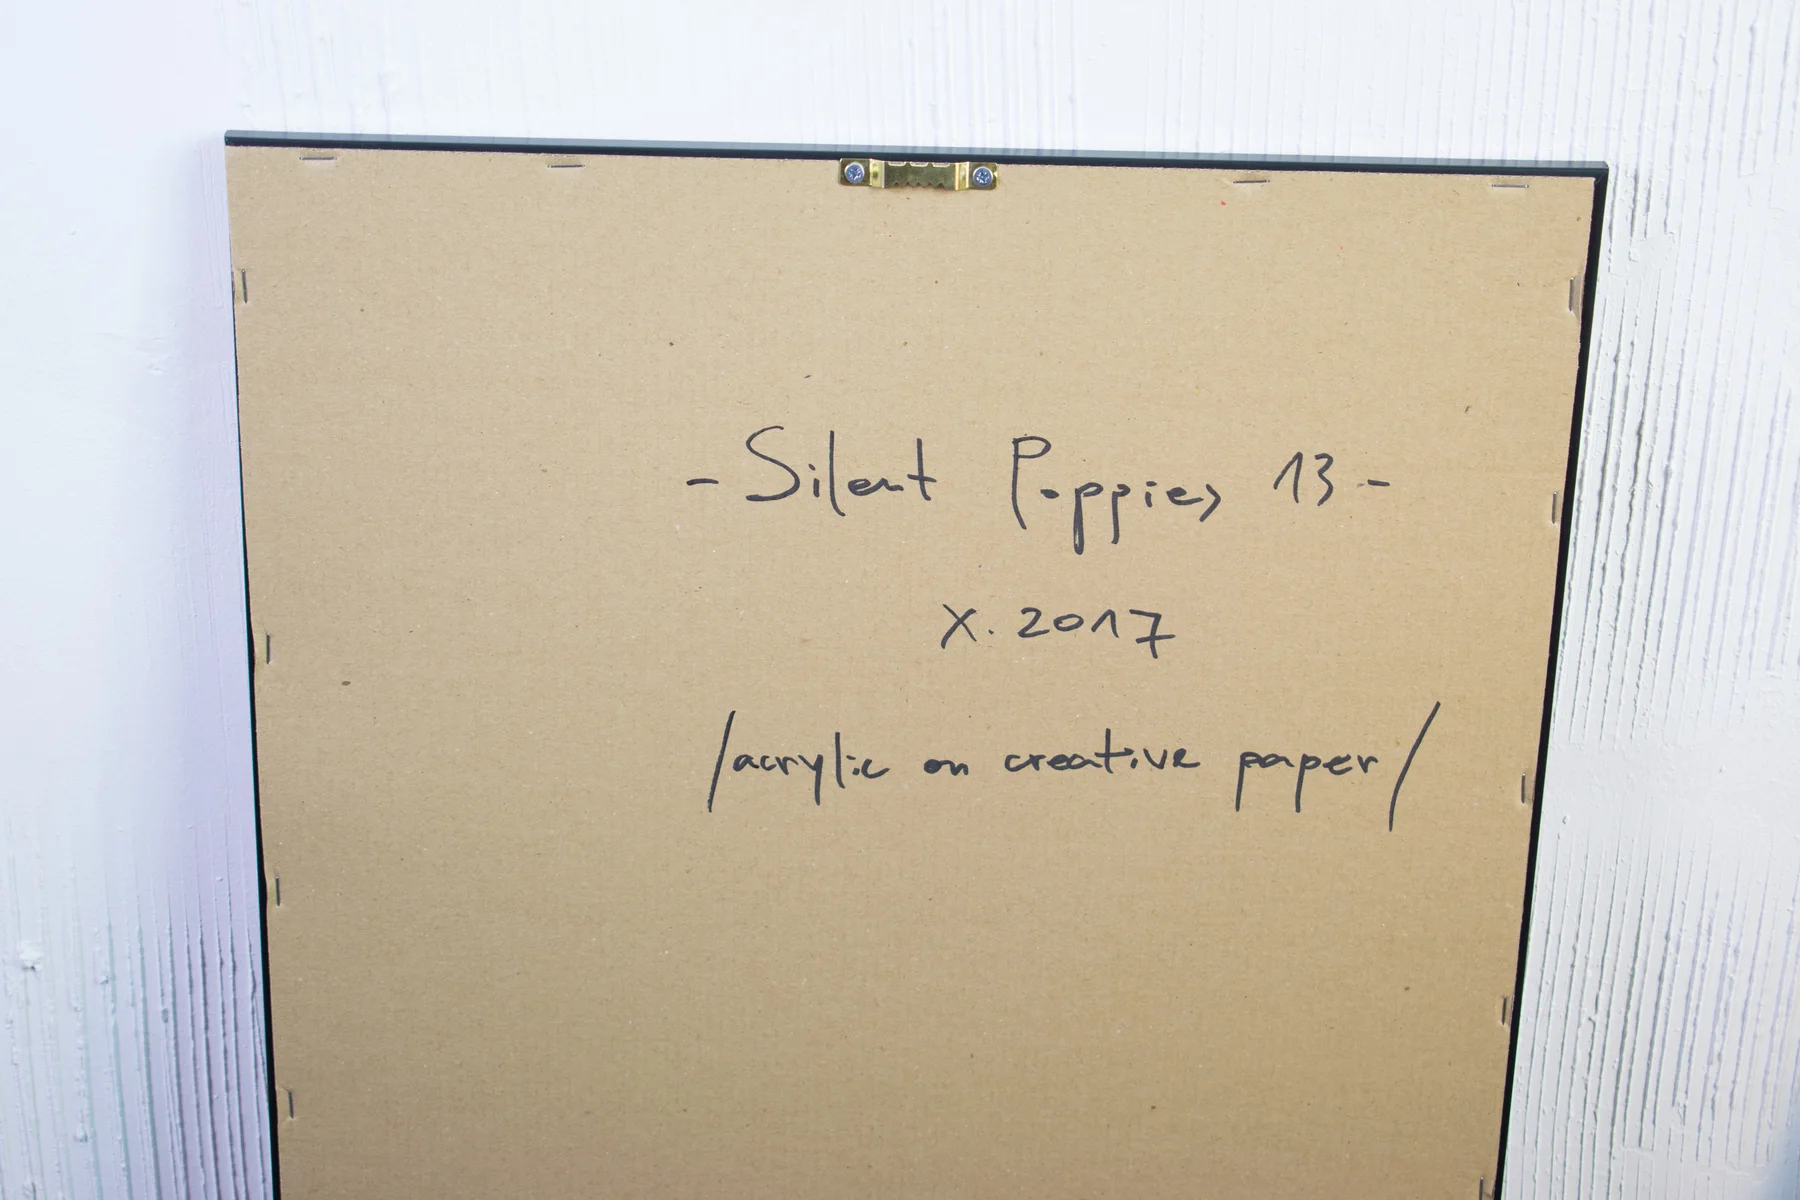 - Silent Poppies 13 -
X. 2017
/acrylic on creative paper/